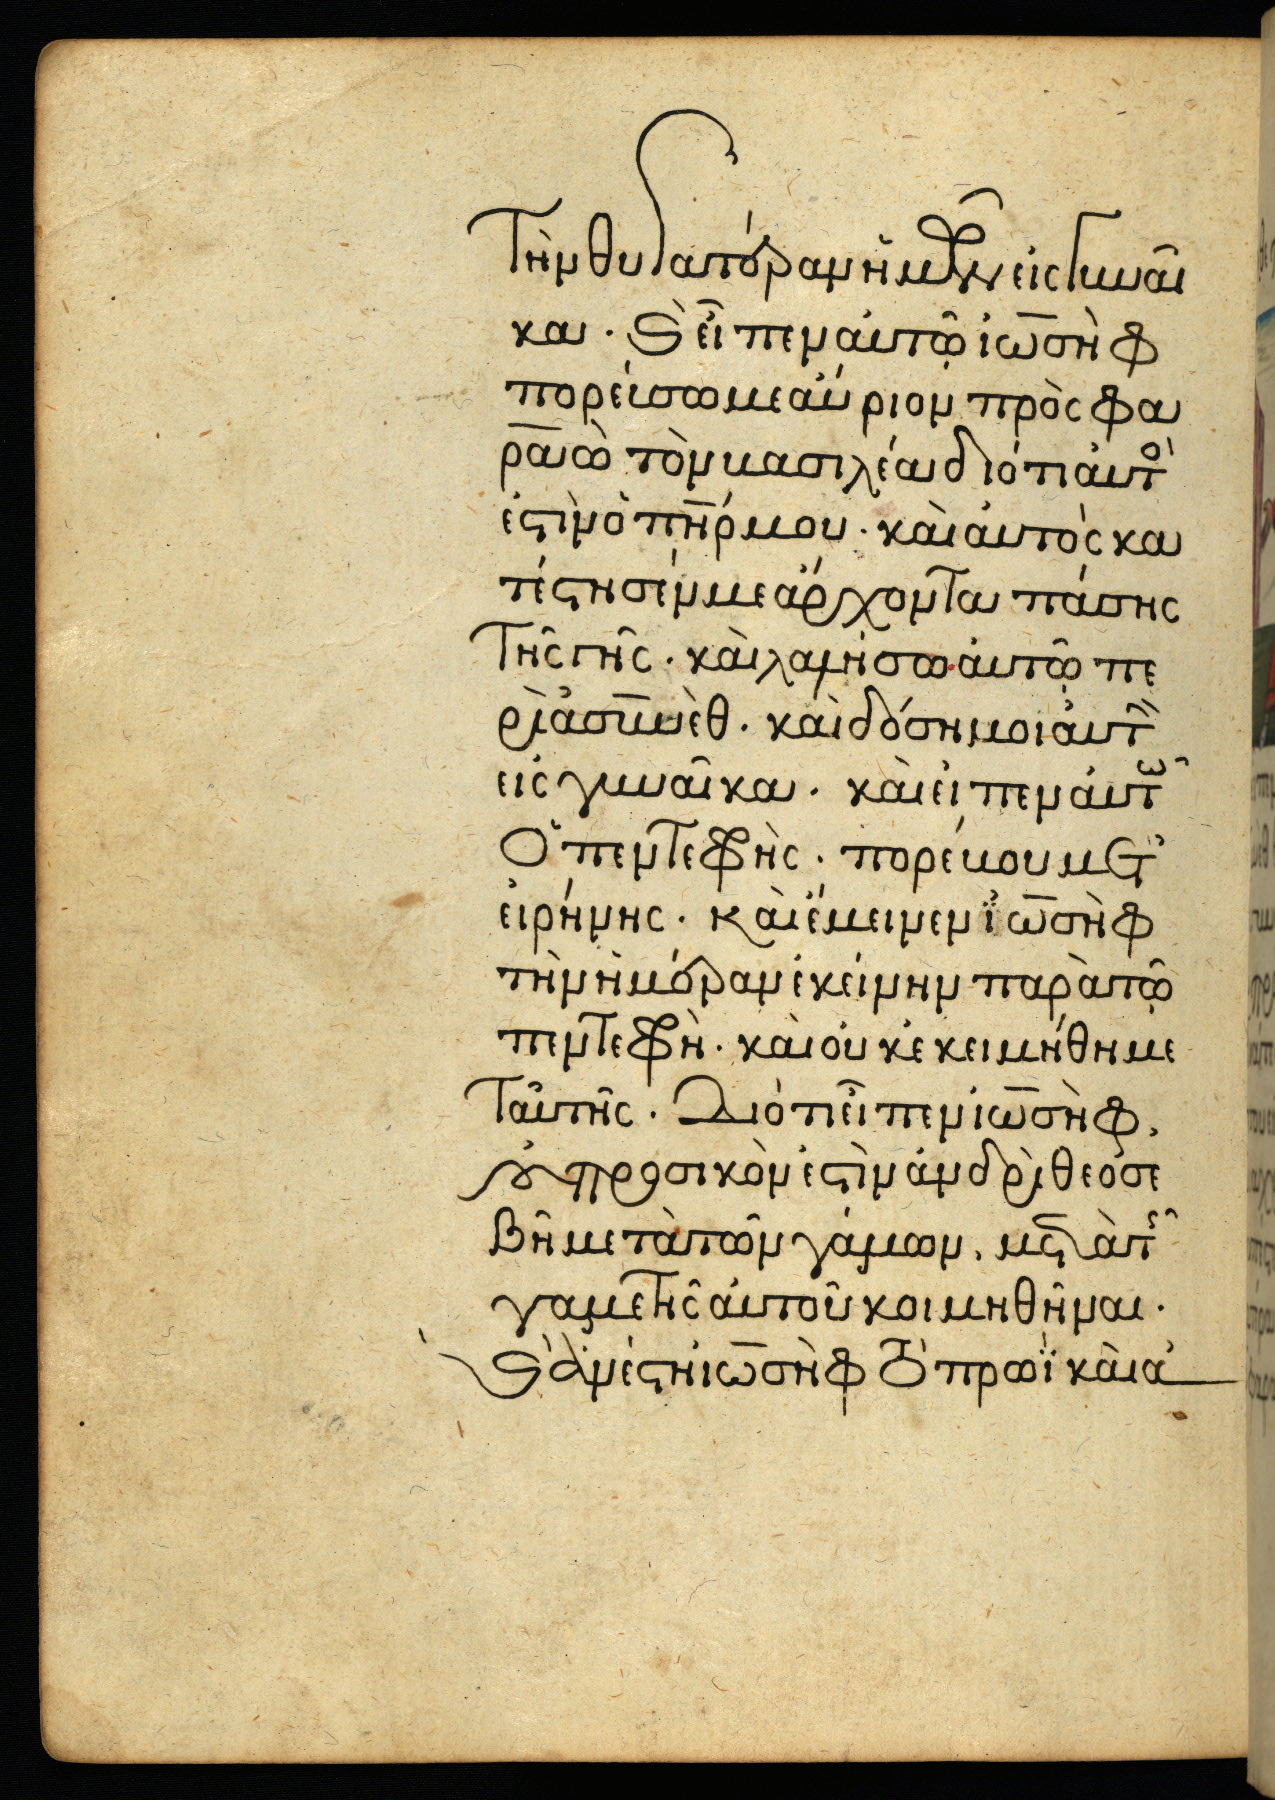 Τὴν θυγατέραν ἡμῶν εἰς γυναῖ
κα. Καὶ εἶπεν αὐτῷ ἰωσὴφ
πορεύσωμε αὔριον πρὸς φα
ραὼ τὸν βασιλέα διότι αὐτὸ
ἐστὶν ὁ πηρ μου. καὶ αὐτὸς κα
τέστησέν με ἄρχονται πάσης
τῆς γῆς. καὶ λαλήσω αὐτῷ πε
ρὶ ἀσυνὲθ. καὶ δόση μοι αὐτὴν
εἰς γυναῖκα. καὶ εἰπεν αὐτῶ
Ὁ πεντεφὴς. πορέβου μετ
εἰρήνης. καὶ ἔμεινεν ἰωσὴφ
τὴν ἡμέραν ἐκείνην παρὰ τῷ
πεντεφὴ. καὶ οὐκ ἐκειμήθη με
ταὐτῆς. Διότι εἶπεν ἰωσὴφ,
οὐ προσικὸν ἐστὶν ἀνδρὶ θεοσε
βῆ μετὰ τῶν γάμων, μετὰ τῆς
γαμετῆς αὐτοῦ κοιμηθῆναι.
Καὶ ἀνέστη ἰωσὴφ τὸ πρωῒ καὶ ἀ